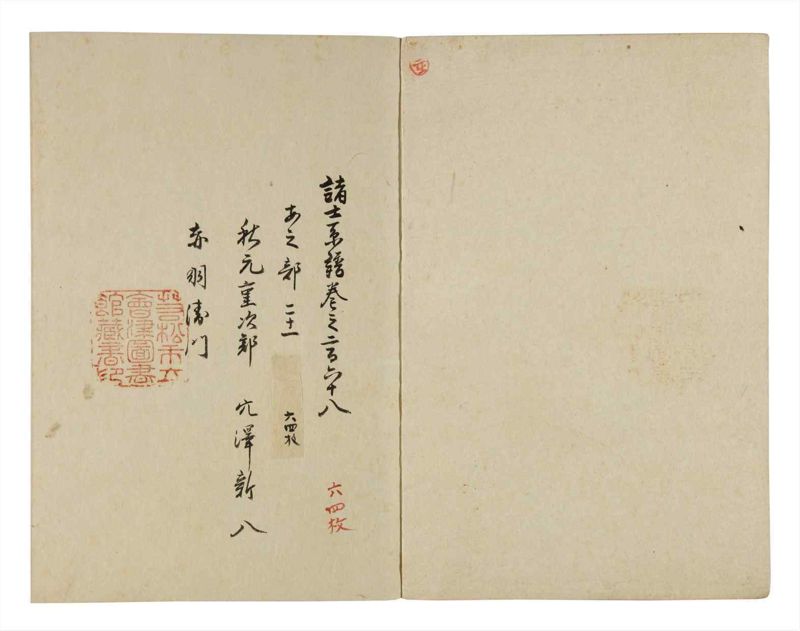 諸士系譜巻之二百六十八
六四枚
あ之部 二十一
六四枚
秋元重次郎 穴澤新八
赤羽󠄁衛門
若松市立
會津圖書
館藏書印